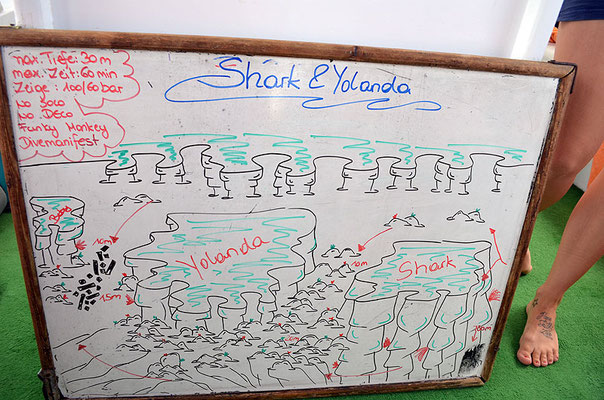 max. Tiefe: 30m
max. Zeit: 60 min
Zeige : 100/60bar
No Solo
No Deco
Funky Monkey
Divemanifest
Shark & Yolanda
Yolanda
Shark
10m
15m
10m